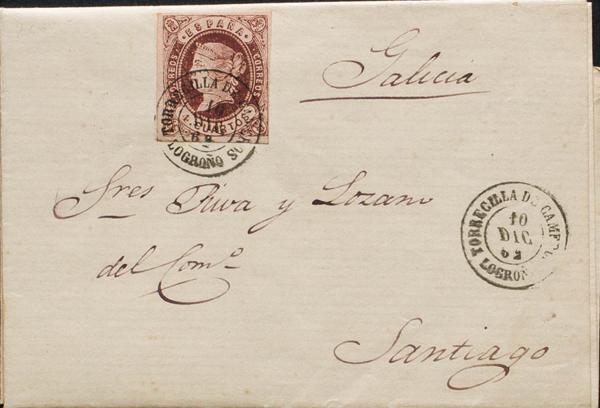 ESPAÑA
CORREOS CORREOS
4 CUARTOS
TORRECILLA DE
10
DIC
62
LOGROÑO
Galicia
Sres Riva y Lozano
del Como
TORRECILLA DE CAMEROS
10
DIC
62
LOGROÑO
Santiago